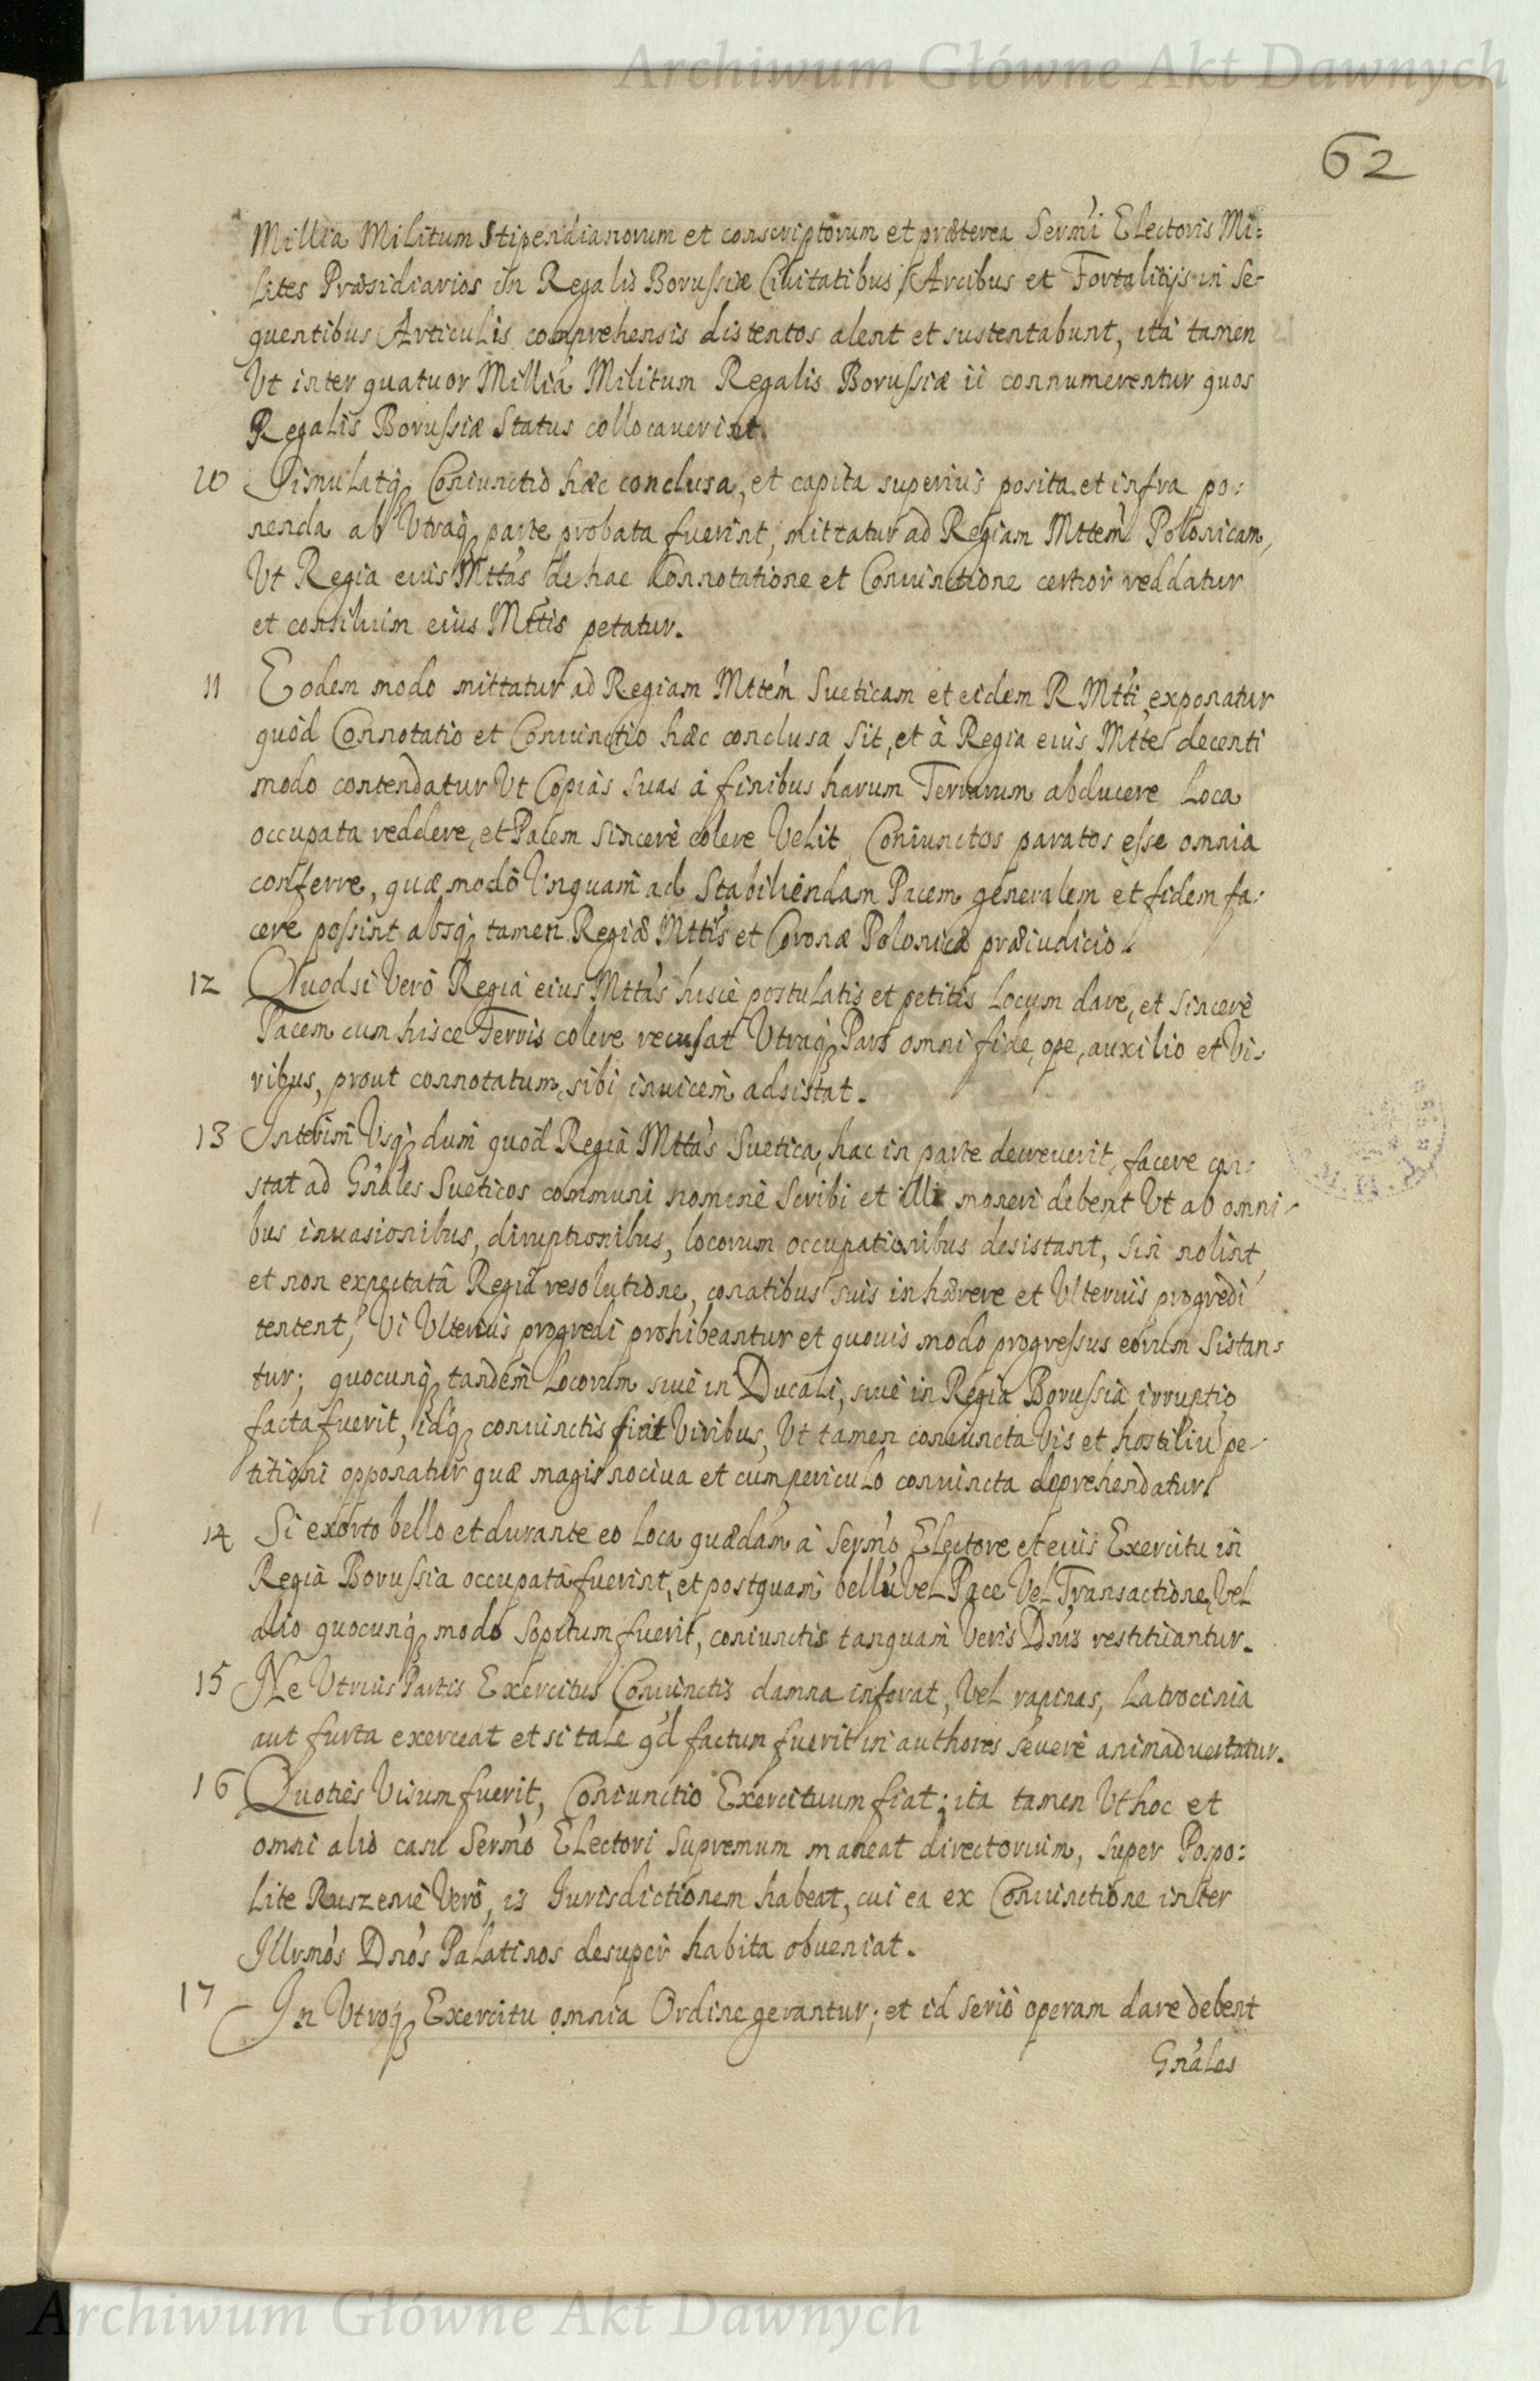 Archiwum Główne Akt Dawnych
62
Millia Militum Stipendianorum et conscriptorum et præterea Sermi Electoris Mi:
lites Præsidiarios in Regalis Borussiæ Ciuitatibus, Arcibus et Fortalitijs in se-
quentibus Articulis comprehensis distentos alent et sustentabunt, ità tamen
Ut inter quatuor Millia Militum Regalis Borussiæ ii connumerentur quos
Regalis Borussiæ Status collocauerint.
10 Simulatq Coniunctio hæc conclusa, et capita superius posita et infra po:
nenda ab Utraq parte probata fuerint, mittatur ad Regiam Mttem Polonicam,
Ut Regia eius Mttas de hac Connotatione et Coniunctione certior reddatur
et consilium eius Mttis petatur.
11 Eodem modo mittatur ad Regiam Mttem Sueticam et eidem R Mtti exponatur
quod Connotatio et Coniunctio hæc conclusa sit, et à Regia eius Mtte decenti
modo contendatur Ut Copias suas à finibus harum Terrarum abducere Loca
occupata reddere, et Pacem sincerè colere Velit, Coniunctos paratos esse omnia
conferre, quæ modò Unquam ad Stabiliendam Pacem generalem et fidem fa:
cere possint absq tamen Regiæ Mttis et Coronæ Polonicæ præiudicio.
12 Quodsi Verò Regia eius Mttas hisce postulatis et petitis Locum dare, et sincerè
Pacem cum hisce Terris colere recusat Utraq Pars omni fide, ope, auxilio et Vi-
ribus, prout connotatum, sibi inuicem adsistat.
13 Interim Usq dum quod Regia Mttas Suetica, hac in parte decreuerit, facere con:
stat ad Gnales Sueticos communi nomine Scribi et illi moneri debent Ut ab omni-
bus inuasionibus, diruptionibus, locorum occupationibus desistant, sin nolint,
et non expectatâ Regiâ resolutione, conatibus suis inhærere et Ulterius progredi
tentent, Vi Ulterius progredi prohibeantur et quouis modo progressus eorum Sistan:
tur; quocunq tandem Locorum siue in Ducali, siue in Regia Borussia irruptio
facta fuerit, idq coniunctis fiat Viribus, Ut tamen coniuncta Vis et hostiliu pe-
titioni opponatur quæ magis nociua et cum periculo coniuncta deprehendatur.
14 Si exorto bello et durante eo Loca quædam à Sermo Electore et eius Exercitu in
Regia Borussia occupata fuerint, et postquam bellu Vel Pace Vel Transactione, Vel
alio quocunq modo Sopitum fuerit, coniunctis tanquam Veris Dnis restituantur.
15 Ne Utrius Partis Exercitus Coniunctis damna inferat, Vel rapinas, Latrocinia
aut furta exerceat et si tale qd factum fuerit in authores seuerè animaduertatur.
16 Quoties Visum fuerit, Coniunctio Exercituum fiat; ita tamen Ut hoc et
omni alio casu Sermo Electori Supremum maneat directorium, super Pospo:
lite Ruszenie Verò, is Jurisdictionem habeat, cui ea ex Coniunctione inter
Illrmos Dnos Palatinos desuper habita obueniat.
17 In Utroq Exercitu omnia Ordine gerantur; et id seriò operam dare debent
Gnales
Archiwum Główne Akt Dawnych